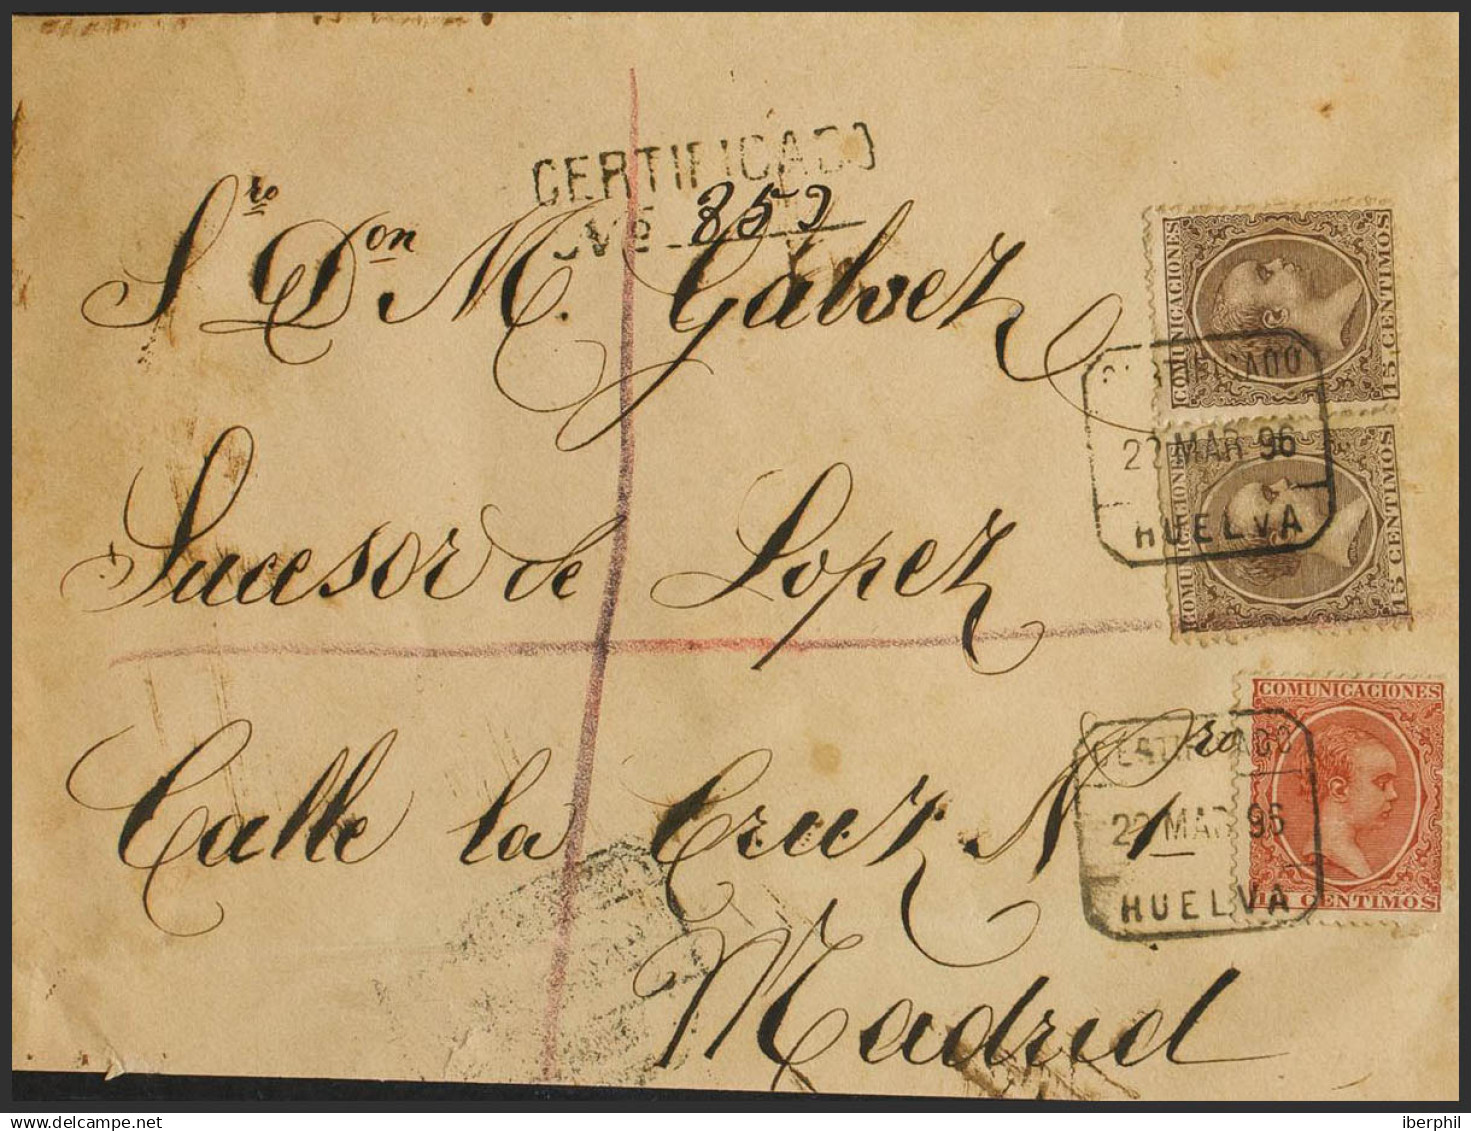 CERTIFICADO
Nº 853
Sʳᵒ Dᵒⁿ M. Gálvez
Sucesor de Lopez
Calle la Cruz Nʳᵒ 1
Madrid
COMUNICACIONES
15 CENTIMOS
CERTIFICADO
22 MAR 96
HUELVA
COMUNICACIONES
15 CENTIMOS
COMUNICACIONES
10 CENTIMOS
CERTIFICADO
22 MAR 96
HUELVA
iberphil